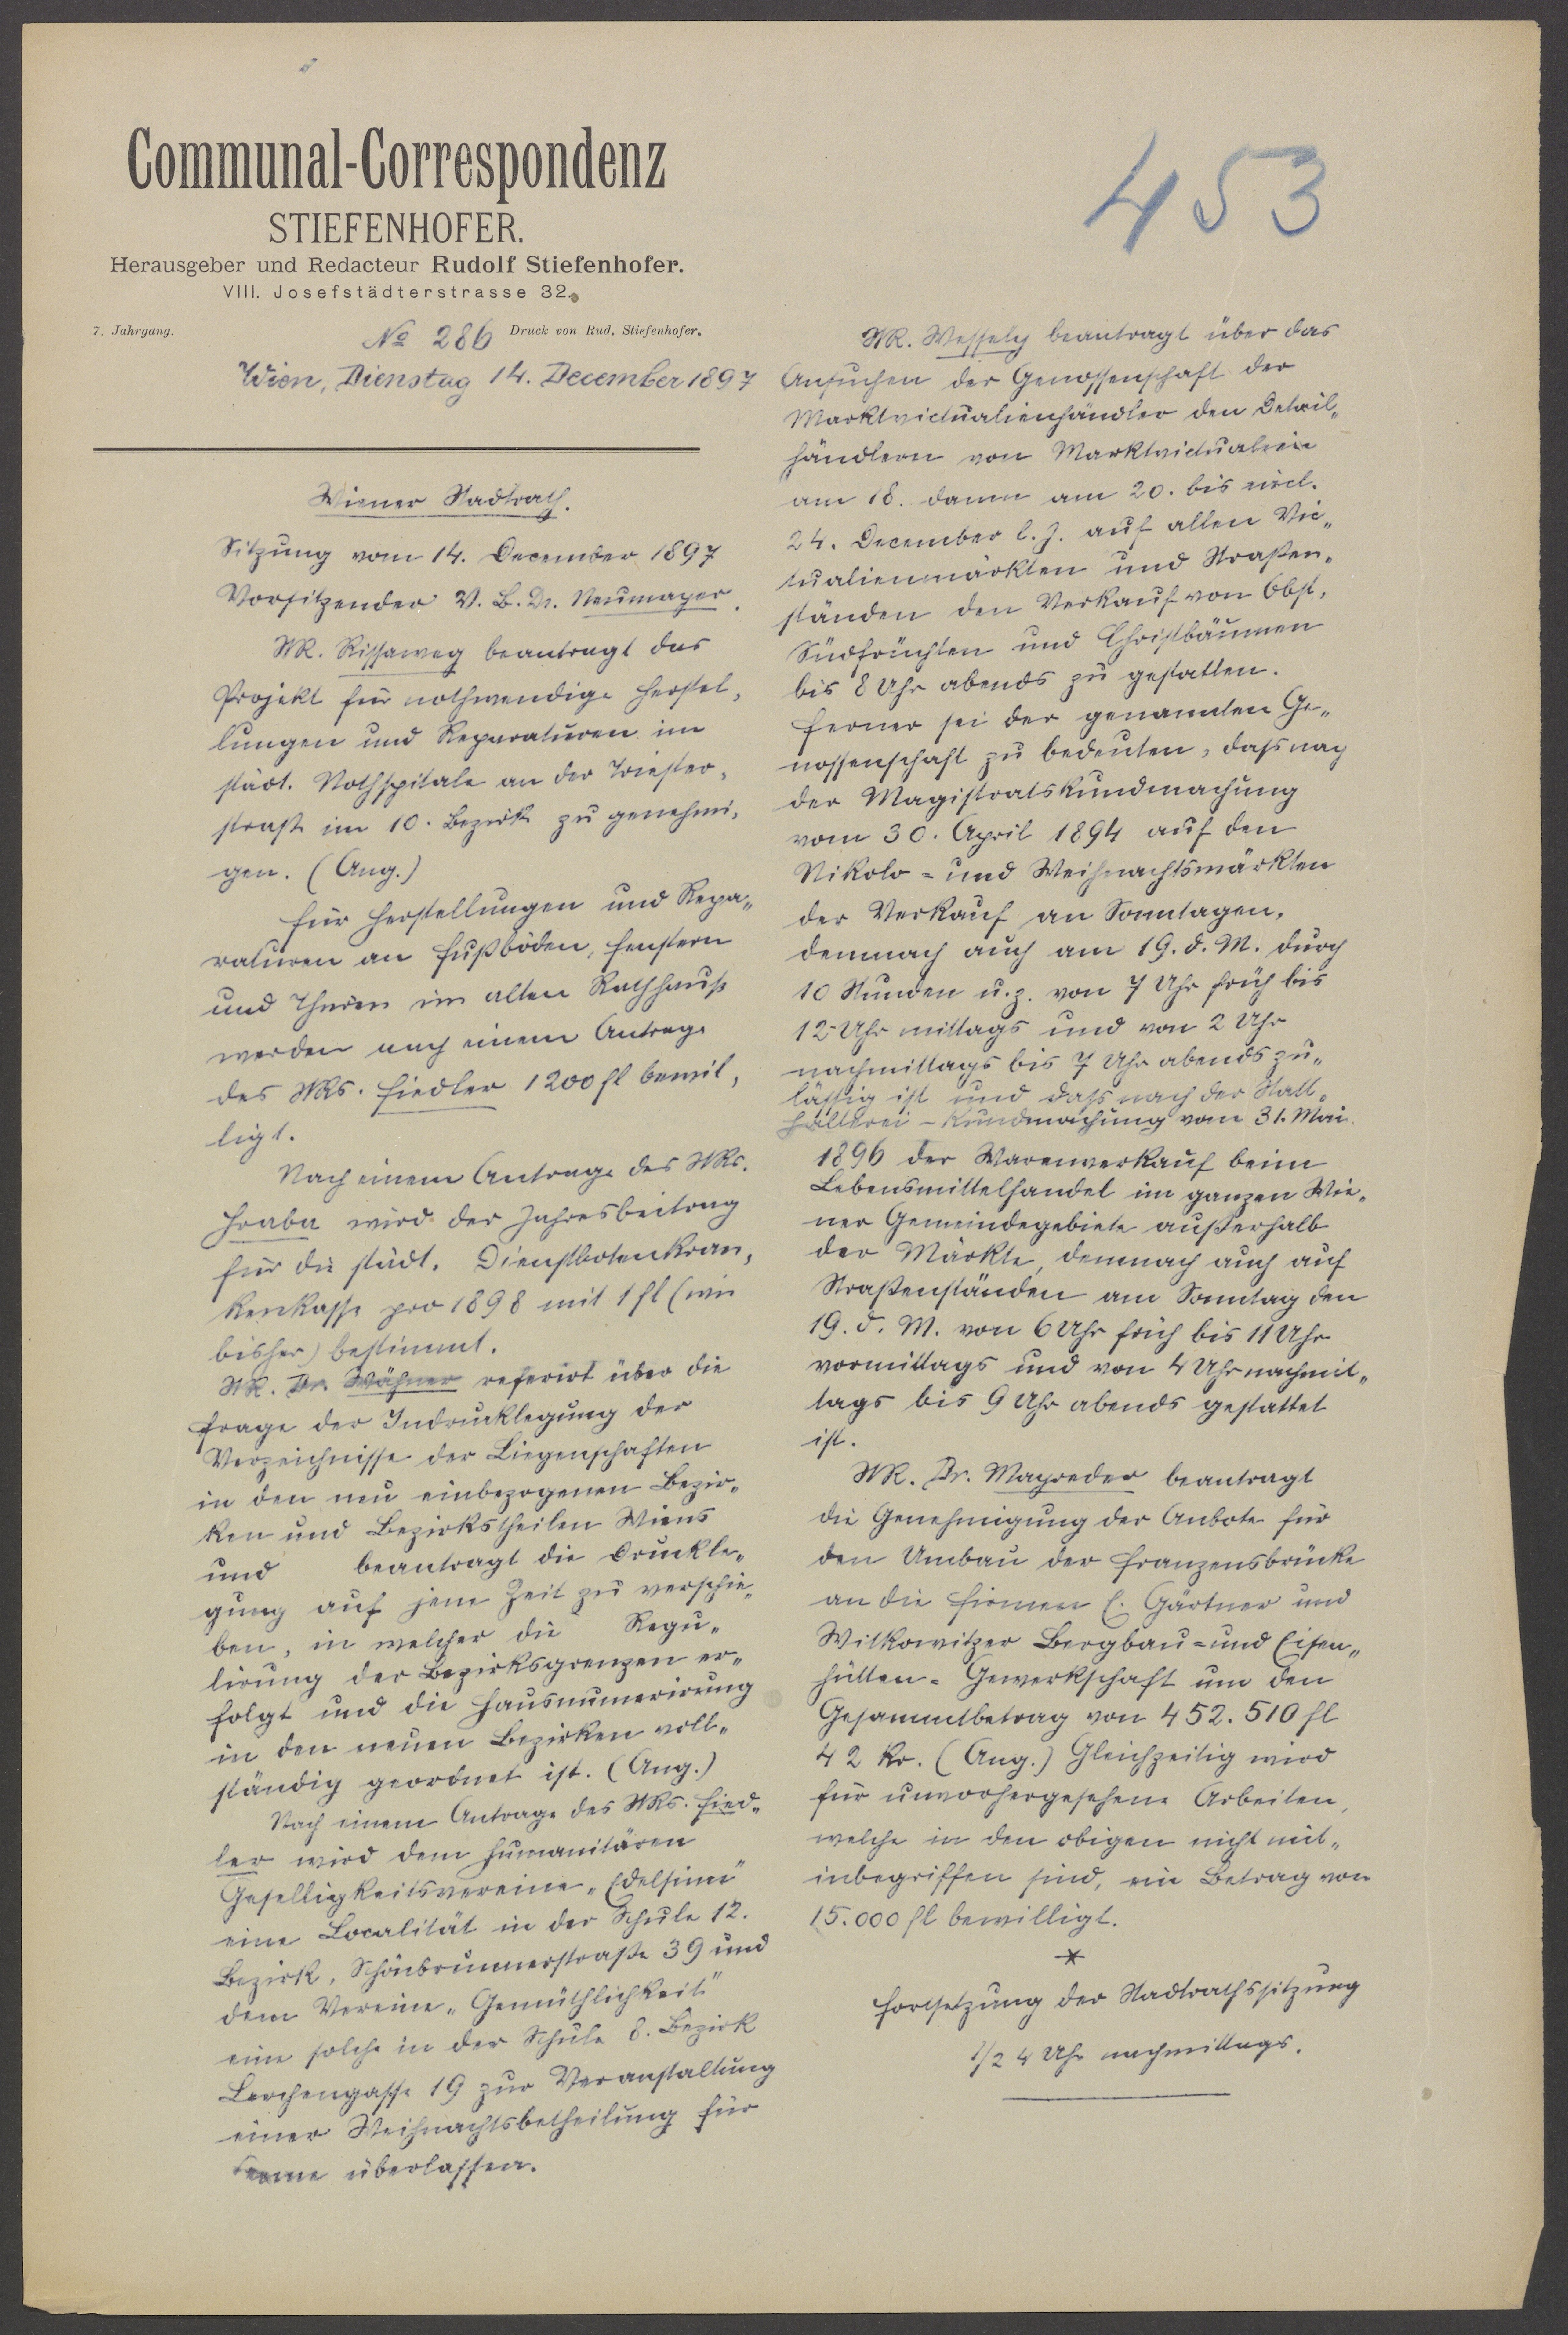 Communal-Correspondenz
STIEFENHOFER.
Herausgeber und Redacteur Rudolf Stiefenhofer.
VIII. Josefstädterstrasse 32.
7. Jahrgang.
Druck von Rud. Stiefenhofer.
№ 286
Wien, Dienstag 14. December 1897
453
Wiener Stadtrath.
Sitzung vom 14. December 1897
Vorsitzender V. B. Dr. Neumayer.
StR. Rissaweg beantragt das
Projekt für nothwendige Herstel„
lungen und Reparaturen im
städt. Nothspitale an der Triester„
straße im 10. Bezirk zu genehmi„
gen. (Ang.)
Für Herstellungen und Repa„
raturen an Fußböden, Fenstern
und Thüren im alten Rathhause
werden nach einem Antrage
des StRs. Fiedler 1200 fl bewil„
ligt.
Nach einem Antrage des StRs.
Hraba wird der Jahresbeitrag
für die städt. Dienstbotenkran„
kenkasse pro 1898 mit 1 fl (wie
bisher) bestimmt.
StR. Dr. Wähner referirt über die
Frage der Indrucklegung der
Verzeichnisse der Liegenschaften
in den neu einbezogenen Bezir„
ken und Bezirkstheilen Wiens
und beantragt die Druckle„
gung auf jene Zeit zu verschie„
ben, in welcher die Regu„
lirung der Bezirksgrenzen er„
folgt und die Hausnumerirung
in den neuen Bezirken voll„
ständig geordnet ist. (Ang.)
Nach einem Antrage des StRs. Fied„
ler wird dem humanitären
Geselligkeitsvereine „Edelsinn"
eine Localität in der Schule 12.
Bezirk, Schönbrunnerstraße 39 und
dem Vereine „Gemüthlichkeit"
eine solche in der Schule 8. Bezirk
Lerchengasse 19 zur Veranstaltung
einer Weihnachtsbetheilung für
Arme überlassen.
StR. Wessely beantragt über das
Ansuchen der Genossenschaft der
Marktvictualienhändler den Detail„
händlern von Marktvictualien
am 18. dann am 20. bis incl.
24. December l. J. auf allen Vic„
tualienmärkten und Straßen„
ständen den Verkauf von Obst,
Südfrüchten und Christbäumen
bis 8 Uhr abends zu gestatten.
Ferner sei der genannten Ge„
nossenschaft zu bedeuten, dass nach
der Magistratskundmachung
vom 30. April 1894 auf den
Nikolo- und Weihnachtsmärkten
der Verkauf an Sonntagen,
demnach auch am 19. d. M. durch
10 Stunden u. z. von 7 Uhr früh bis
12 Uhr mittags und von 2 Uhr
nachmittags bis 7 Uhr abends zu„
lässig ist und dass nach der Statt„
halterei-Kundmachung vom 31. Mai
1896 der Warenverkauf beim
Lebensmittelhandel im ganzen Wie„
ner Gemeindegebiete außerhalb
der Märkte, demnach auch auf
Straßenständen am Sonntag den
19. d. M. von 6 Uhr früh bis 11 Uhr
vormittags und von 4 Uhr nachmit„
tags bis 9 Uhr abends gestattet
ist.
StR. Dr. Mayreder beantragt
die Genehmigung der Anbote für
den Umbau der Franzensbrücke
an die Firmen E. Gärtner und
Witkowitzer Bergbau- und Eisen„
hütten-Gewerkschaft um den
Gesammtbetrag von 452.510 fl
42 kr. (Ang.) Gleichzeitig wird
für unvorhergesehene Arbeiten,
welche in den obigen nicht mit„
inbegriffen sind, ein Betrag von
15.000 fl bewilligt.
*
Fortsetzung der Stadtrathssitzung
1/2 4 Uhr nachmittags.